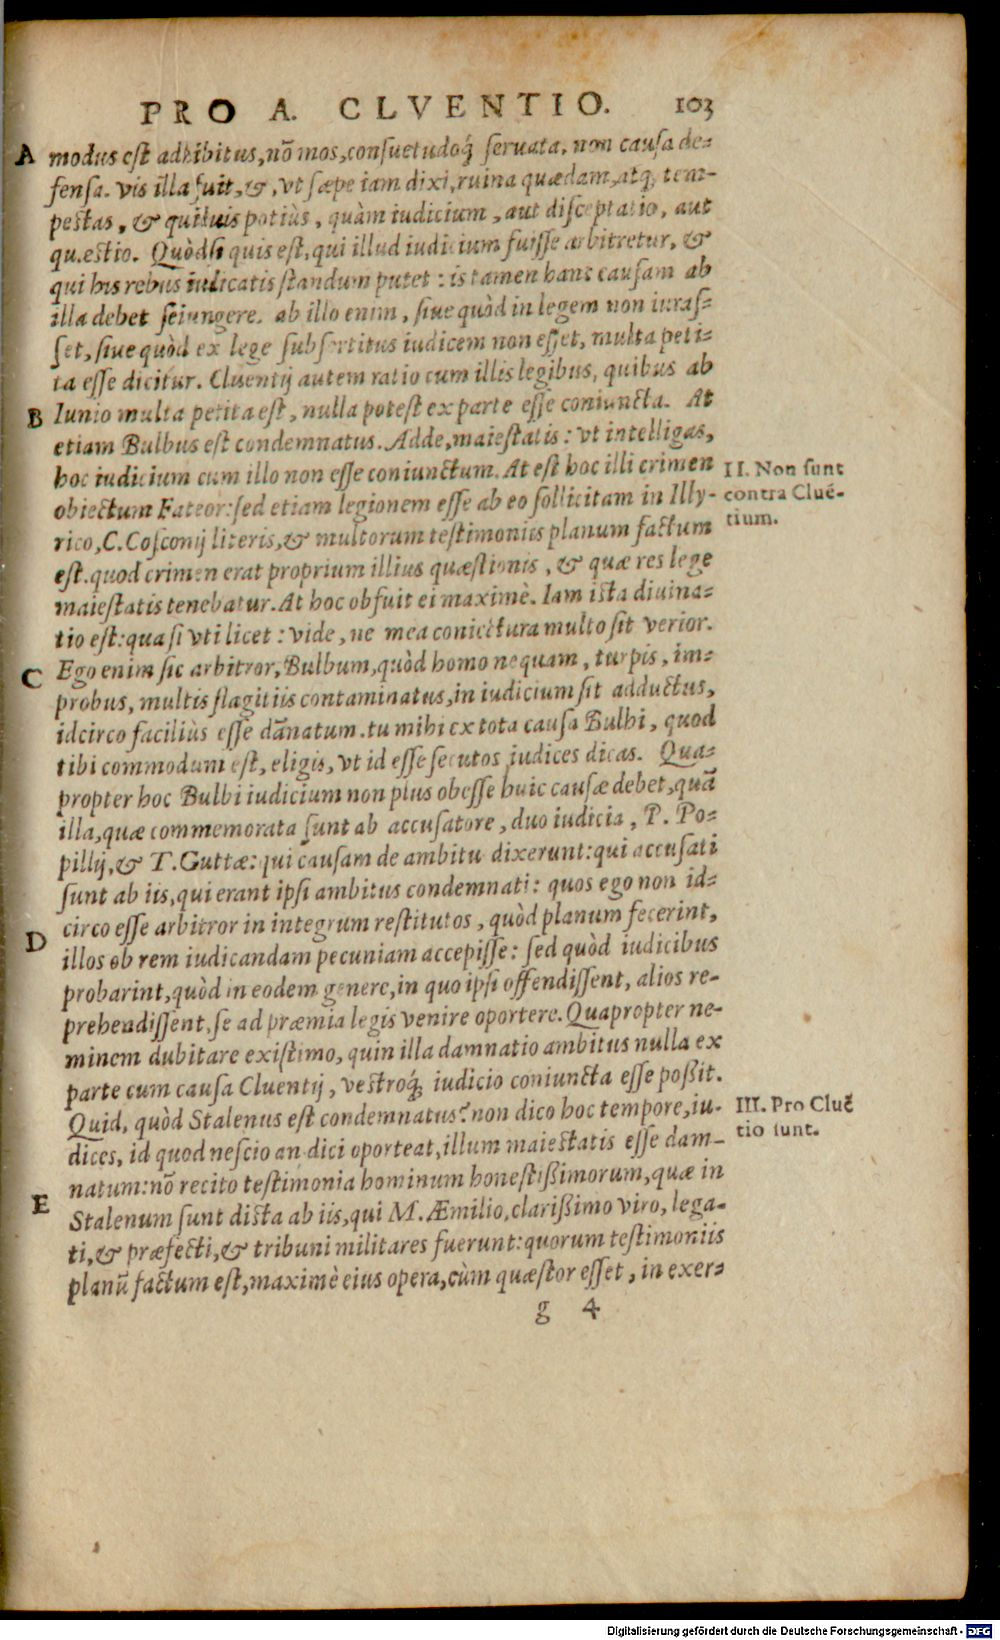 PRO A. CLVENTIO. 103
A modus est adhibitus, nō mos, consuetudoq́; seruata, non causa de-
fensa. vis illa fuit, &, vt sæpe iam dixi, ruina quædam, atq; tem-
pestas, & quiluis potiùs, quàm iudicium, aut disceptatio, aut
quæstio. Quòdsi quis est, qui illud iudicium fuisse arbitretur, &
qui his rebus iudicatis standum putet: is tamen hanc causam ab
illa debet seiungere. ab illo enim, siue quòd in legem non iuras-
set, siue quòd ex lege subsortitus iudicem non esset, multa peti-
ta esse dicitur. Cluentij autem ratio cum illis legibus, quibus ab
B Iunio multa petita est, nulla potest ex parte esse coniuncta. At
etiam Bulbus est condemnatus. Adde, maiestatis: vt intelligas,
hoc iudicium cum illo non esse coniunctum. At est hoc illi crimen
obiectum Fateor: sed etiam legionem esse ab eo sollicitam in Illy-
rico, C. Cosconij literis, & multorum testimoniis planum factum
est. quod crimen erat proprium illius quæstionis, & quæ res lege
maiestatis tenebatur. At hoc obfuit ei maximè. Iam ista diuina-
tio est: qua si vti licet: vide, ne mea coniectura multo sit verior.
C Ego enim sic arbitror, Bulbum, quòd homo nequam, turpis, im-
probus, multis flagitiis contaminatus, in iudicium sit adductus,
idcirco faciliùs esse dānatum. tu mihi ex tota causa Bulbi, quod
tibi commodum est, eligis, vt id esse secutos iudices dicas. Qua-
propter hoc Bulbi iudicium non plus obesse huic causæ debet, quā
illa, quæ commemorata sunt ab accusatore, duo iudicia, P. Po-
pillij, & T. Guttæ: qui causam de ambitu dixerunt: qui accusati
sunt ab iis, qui erant ipsi ambitus condemnati: quos ego non id-
circo esse arbitror in integrum restitutos, quòd planum fecerint,
D illos ob rem iudicandam pecuniam accepisse: sed quòd iudicibus
probarint, quòd in eodem genere, in quo ipsi offendissent, alios re-
prehendissent, se ad præmia legis venire oportere. Quapropter ne-
minem dubitare existimo, quin illa damnatio ambitus nulla ex
parte cum causa Cluentij, vestroq́; iudicio coniuncta esse poßit.
Quid, quòd Stalenus est condemnatus? non dico hoc tempore, iu-
dices, id quod nescio an dici oporteat, illum maiestatis esse dam-
natum: nō recito testimonia hominum honestißimorum, quæ in
E Stalenum sunt dicta ab iis, qui M. Æmilio, clarißimo viro, lega-
ti, & præfecti, & tribuni militares fuerunt: quorum testimoniis
planū factum est, maximè eius opera, cùm quæstor esset, in exer-
g 4
II. Non sunt
contra Cluē-
tium.
III. Pro Cluē
tio sunt.
Digitalisierung gefördert durch die Deutsche Forschungsgemeinschaft - DFG